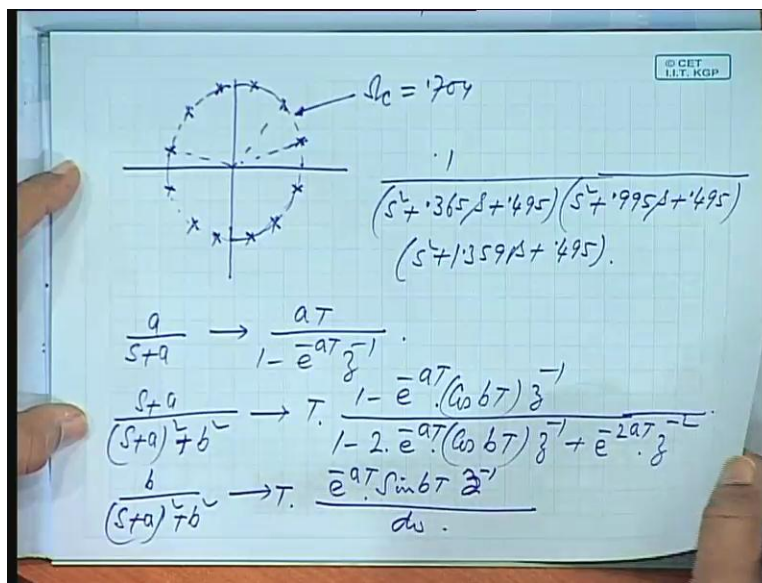 © CET
I.I.T. KGP
Ωc = .704
.1 / (s² + .365s + .495)(s² + .995s + .495)
(s² + 1.359s + .495).
a / (s+a) → aT / (1 - e^-aT z^-1) .
(s+a) / ((s+a)² + b²) → T. (1 - e^-aT. (Cos bT) z^-1) / (1 - 2. e^-aT. (Cos bT) z^-1 + e^-2aT. z^-2) .
b / ((s+a)² + b²) → T. (e^-aT. Sin bT z^-1) / do .